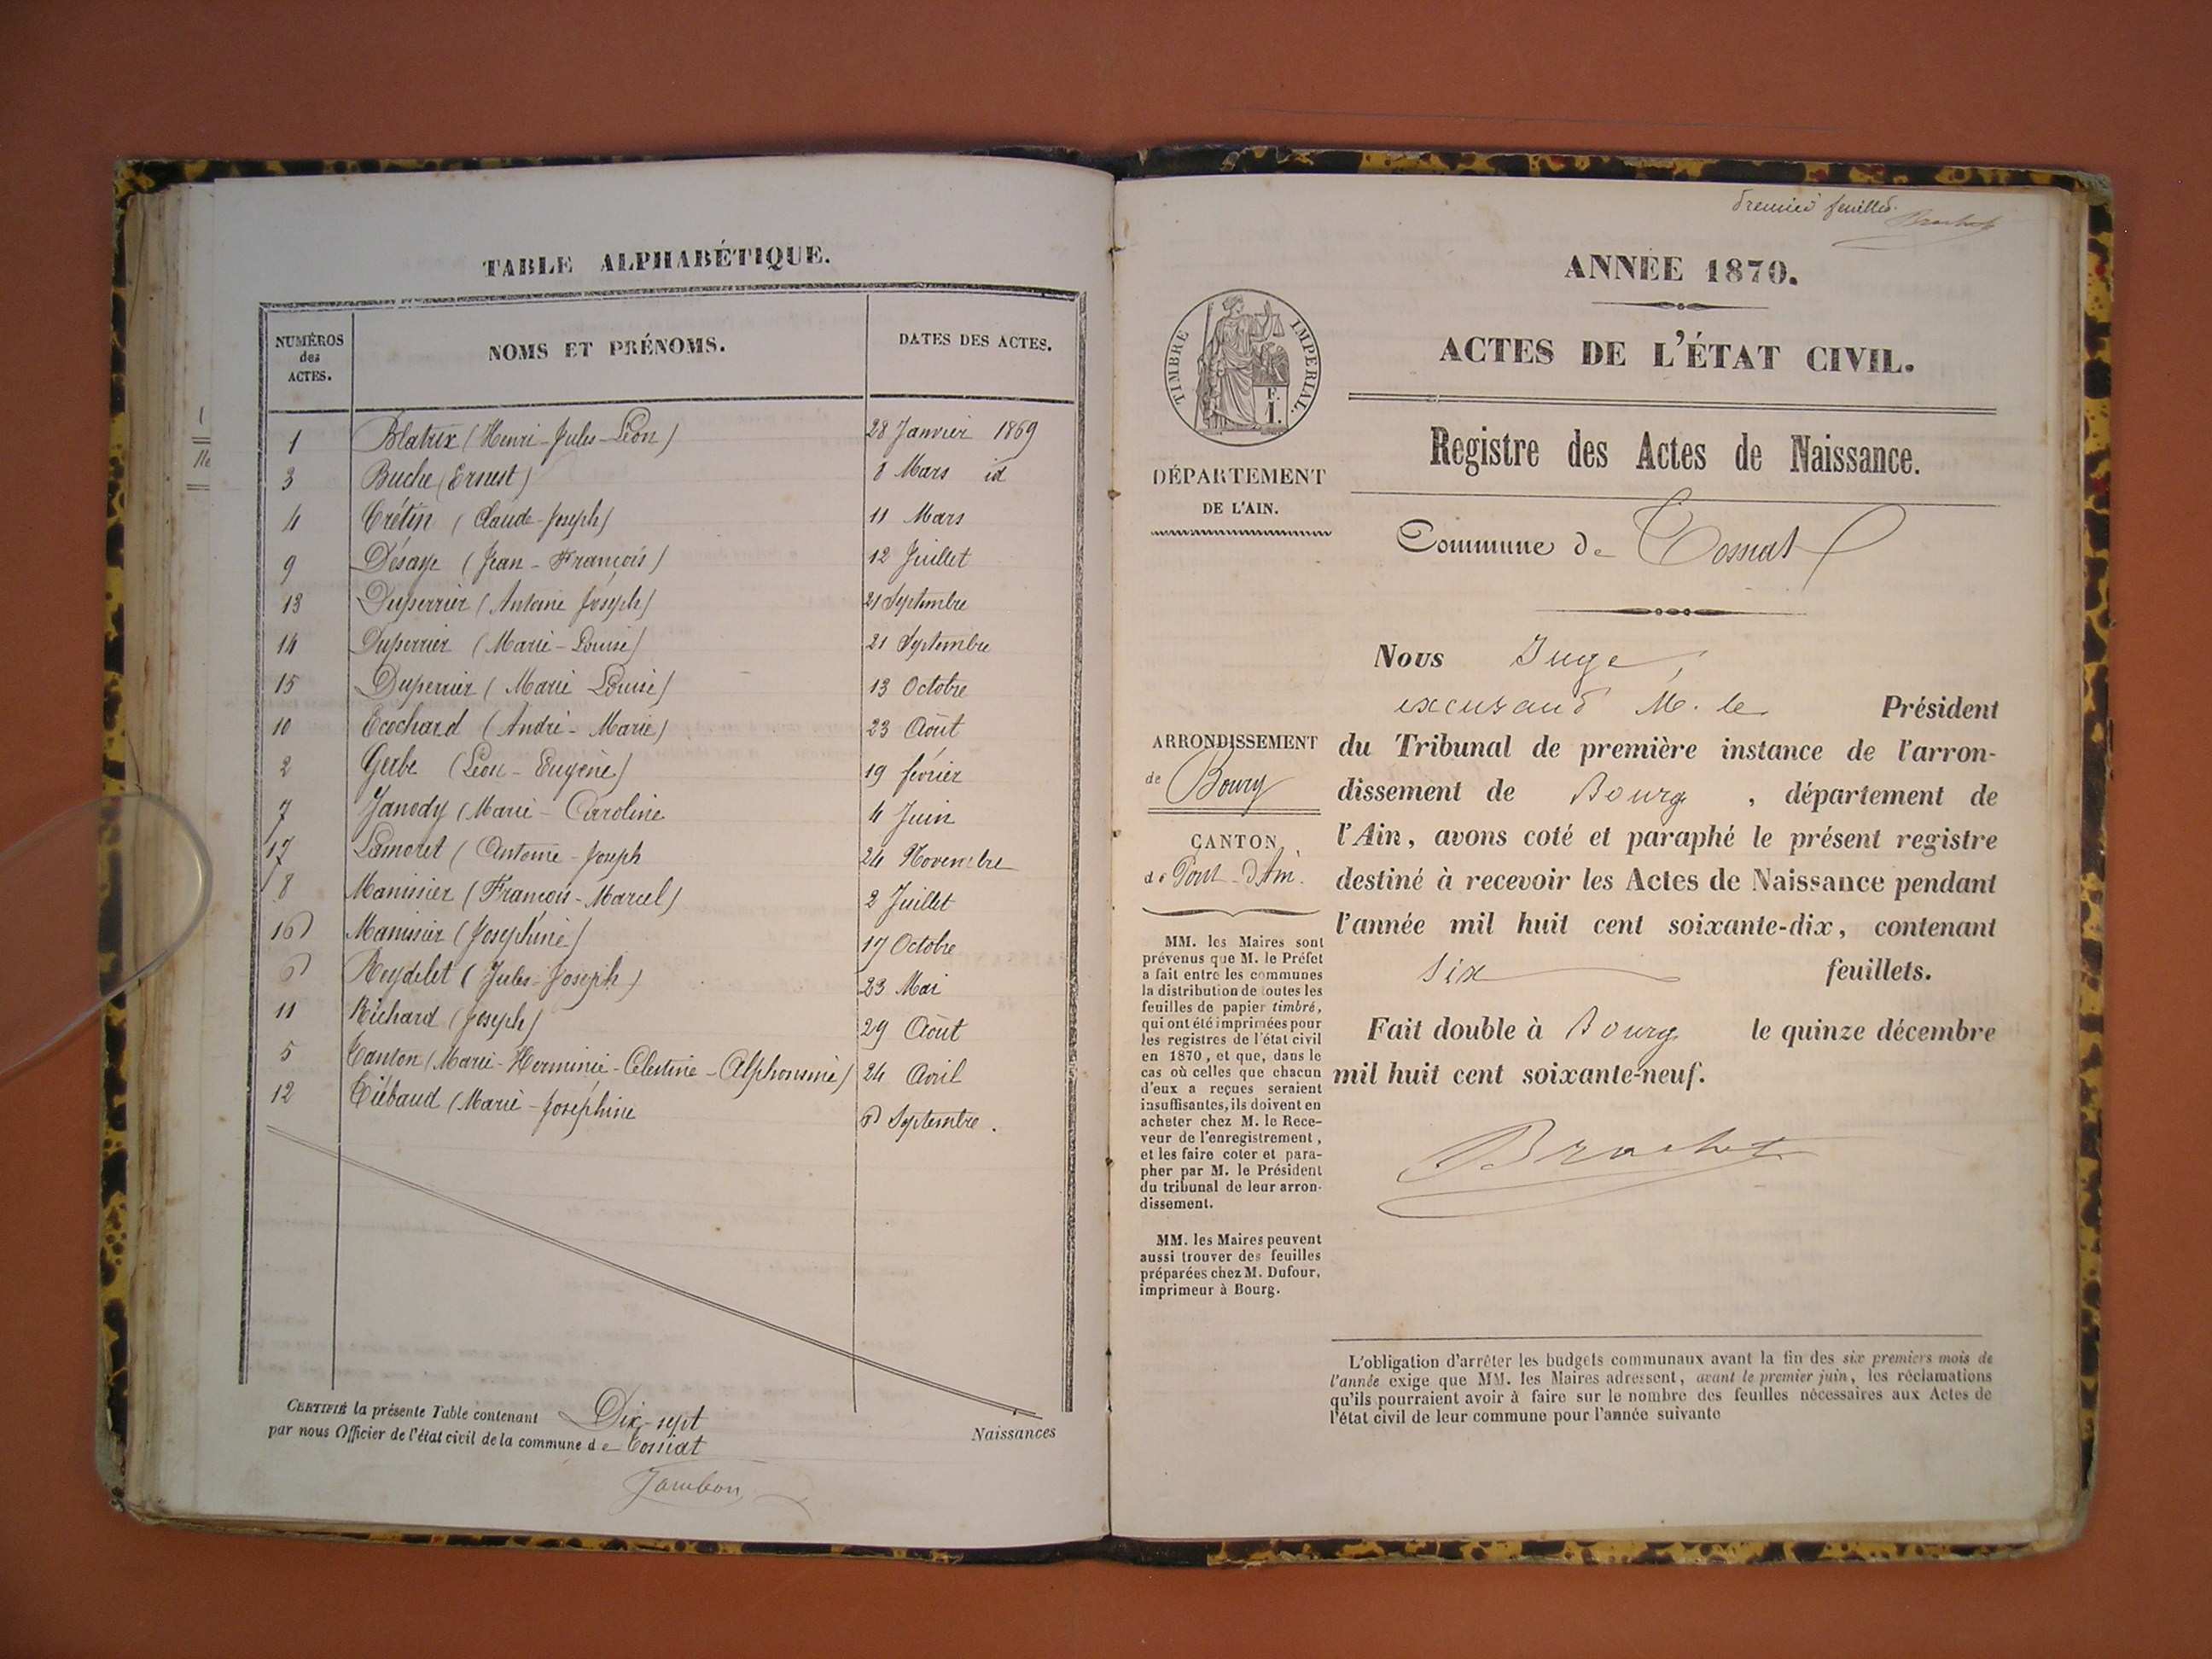 TABLE ALPHABÉTIQUE.
NUMÉROS des ACTES. NOMS ET PRÉNOMS. DATES DES ACTES.
1 Blatrix (Henri-Jules-Léon) 28 Janvier 1869
3 Buche (Ernest) 8 Mars id
4 Crétin (Claude-Joseph) 11 Mars
9 Désaye (Jean-François) 12 Juillet
13 Duperrier (Antoine Joseph) 21 Septembre
14 Duperrier (Marie-Louise) 21 Septembre
15 Duperrier (Marie Louise) 13 Octobre
10 Ecochard (André-Marie) 23 Août
2 Gerbe (Léon-Eugène) 19 février
7 Janody (Marie-Caroline 4 Juin
17 Lamoret (Antoine-Joseph 24 Novembre
8 Manissier (François-Marcel) 2 Juillet
16 Manissier (Joséphine) 17 Octobre
6 Reydelet (Jules-Joseph) 23 Mai
11 Richard (Joseph) 29 Août
5 Tanton (Marie-Herminie-Célestine-Alphonsine) 24 Avril
12 Tiébaud (Marie-Joséphine 6 Septembre.
CERTIFIÉ la présente Table contenant Dix-sept
par nous Officier de l'état civil de la commune de Tossiat
Naissances
Jambon
Premier feuillet.
Brachet
ANNÉE 1870.
ACTES DE L'ÉTAT CIVIL.
Registre des Actes de Naissance.
Commune de Tossiat
TIMBRE IMPERIAL.
1.
DÉPARTEMENT
DE L'AIN.
ARRONDISSEMENT
de Bourg
CANTON
de Pont-d'Ain.
MM. les Maires sont
prévenus que M. le Préfet
a fait entre les communes
la distribution de toutes les
feuilles de papier timbré,
qui ont été imprimées pour
les registres de l'état civil
en 1870, et que, dans le
cas où celles que chacun
d'eux a reçues seraient
insuffisantes, ils doivent en
acheter chez M. le Rece-
veur de l'enregistrement,
et les faire coter et para-
pher par M. le Président
du tribunal de leur arron-
dissement.
MM. les Maires peuvent
aussi trouver des feuilles
préparées chez M. Dufour,
imprimeur à Bourg.
Nous Juge,
excusant M. le Président
du Tribunal de première instance de l'arron-
dissement de Bourg, département de
l'Ain, avons coté et paraphé le présent registre
destiné à recevoir les Actes de Naissance pendant
l'année mil huit cent soixante-dix, contenant
six feuillets.
Fait double à Bourg le quinze décembre
mil huit cent soixante-neuf.
Brachet
L'obligation d'arrêter les budgets communaux avant la fin des six premiers mois de
l'année exige que MM. les Maires adressent, avant le premier juin, les réclamations
qu'ils pourraient avoir à faire sur le nombre des feuilles nécessaires aux Actes de
l'état civil de leur commune pour l'année suivante